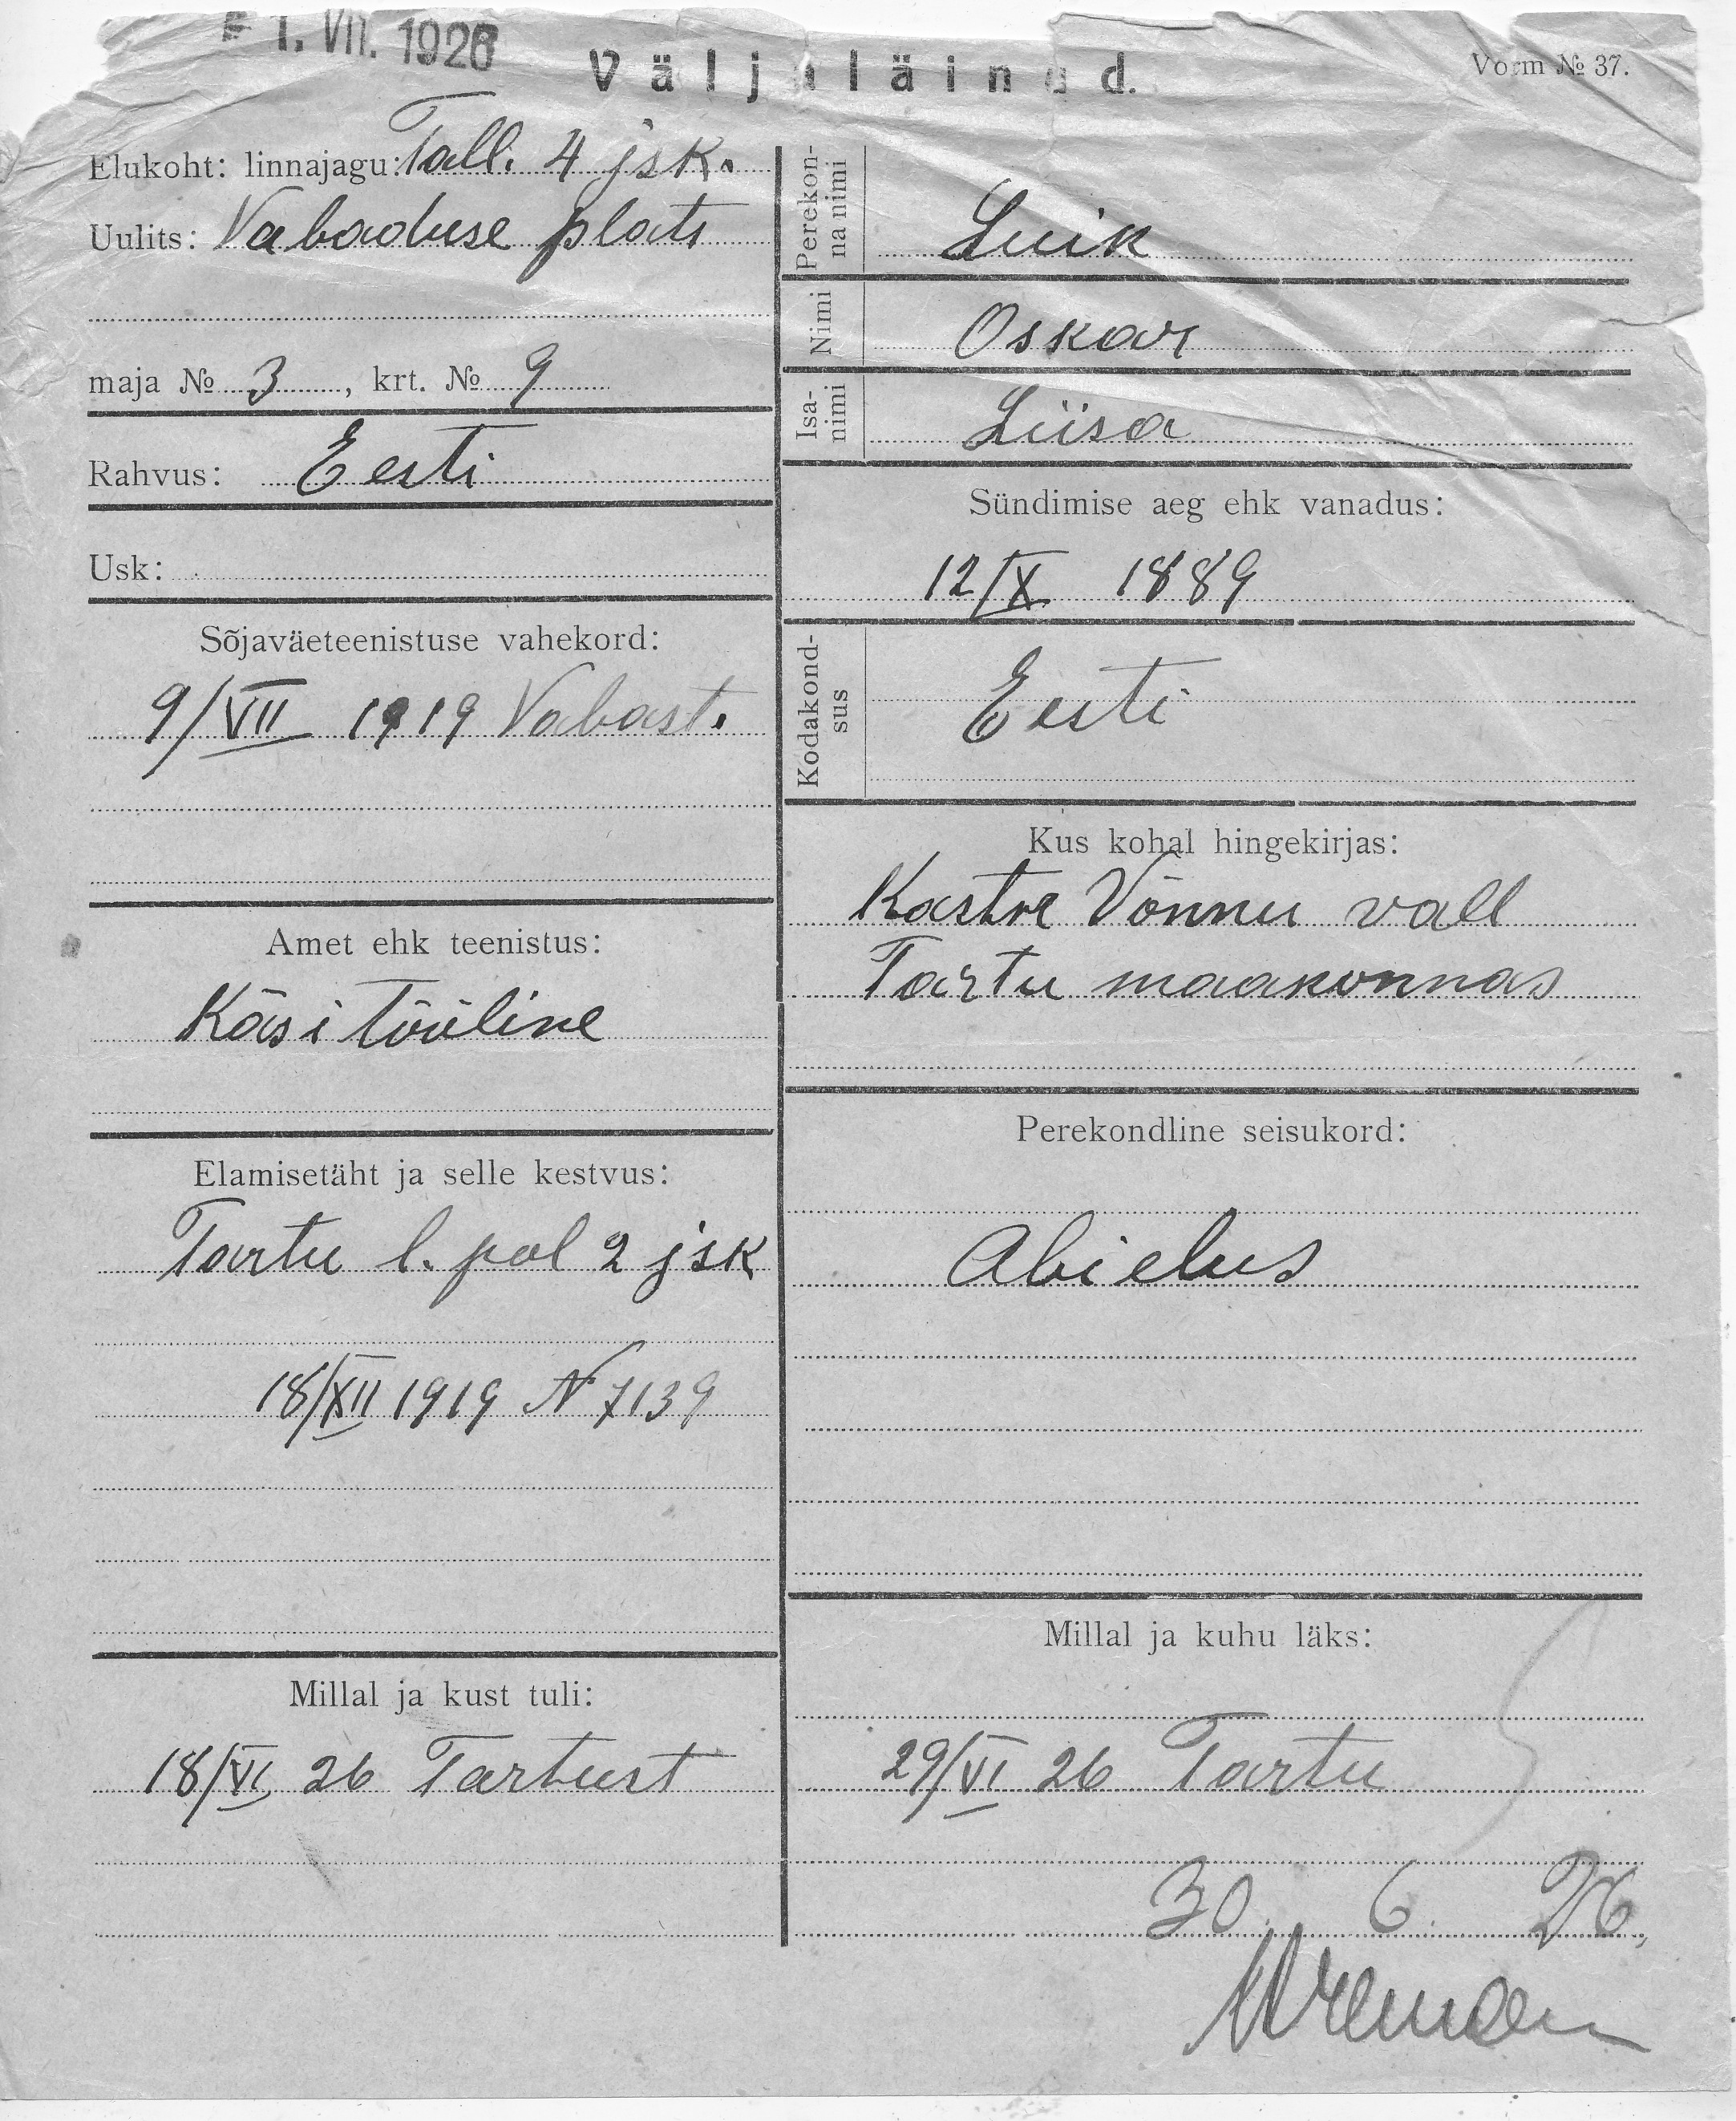 1. VII. 1926
Väljaläinud.
Vorm № 37.
Elukoht: linnajagu: Tall. 4 jsk.
Uulits: Vabaduse plats
maja № 3, krt. № 9
Rahvus: Eesti
Usk:
Sõjaväeteenistuse vahekord:
9/VII 1919 Vabast.
Amet ehk teenistus:
Käsitööline
Elamisetäht ja selle kestvus:
Tartu l. pol 2 jsk
18/XII 1919 N 7139
Millal ja kust tuli:
18/VI 26 Tartust
Perekon-
na nimi
Luik
Nimi
Oskar
Isa-
nimi
Liisa
Sündimise aeg ehk vanadus:
12/IX 1889
Kodakond-
sus
Eesti
Kus kohal hingekirjas:
Kastre Võnnu vall
Tartu maakonnas
Perekondline seisukord:
Abielus
Millal ja kuhu läks:
29/VI 26 Tartu
30. 6. 26.